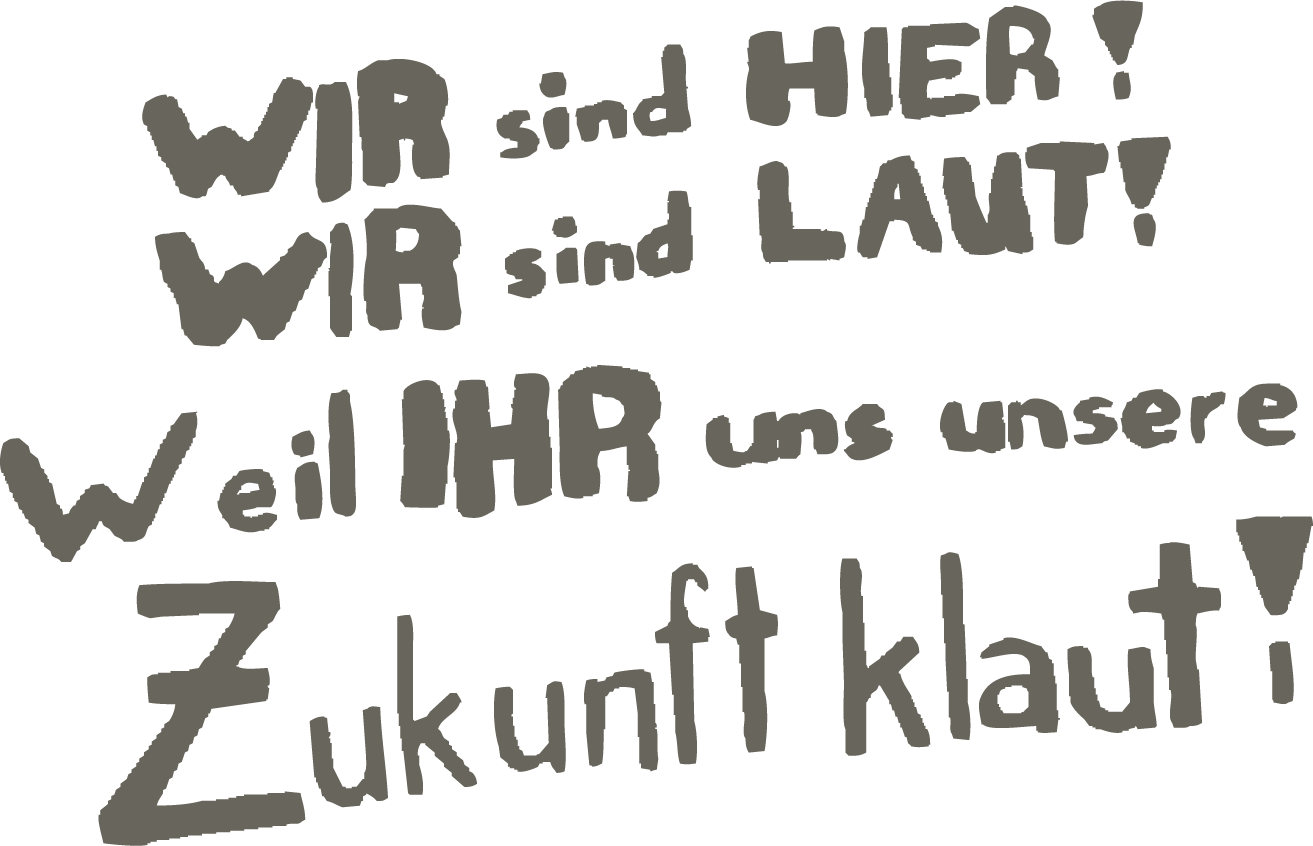 WIR sind HIER!
WIR sind LAUT!
Weil IHR uns unsere
Zukunft klaut!